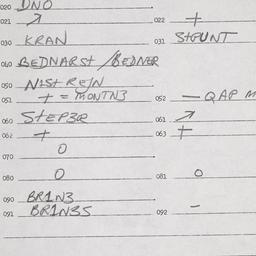 020 DNO
021 ↗ 022 +
030 KRAN 031 STPUNT
040 BEDNARST / BEDNER
050 NIST REJN
051 + = MONTN3 052 — QAP M
060 STEP3R 061 ↗
062 + 063 +
070 O
080 O 081 O
090 BR1N3
091 BR1N3S 092 –